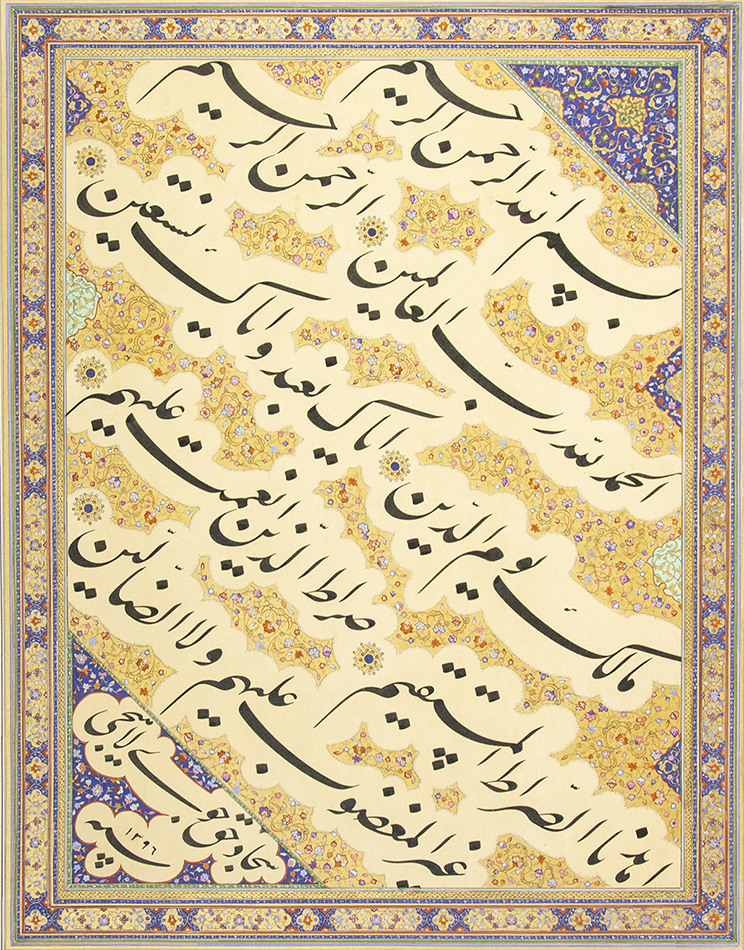 بسم الله الرحمن الرحیم
الحمد لله رب العالمین
الرحمن الرحیم
مالک یوم الدین
ایاک نعبد و ایاک نستعین
اهدنا الصراط المستقیم
صراط الذین انعمت علیهم
غیر المغضوب علیهم و لا الضالین
سجاد لاهیجی
سنه ۱۳۹۶